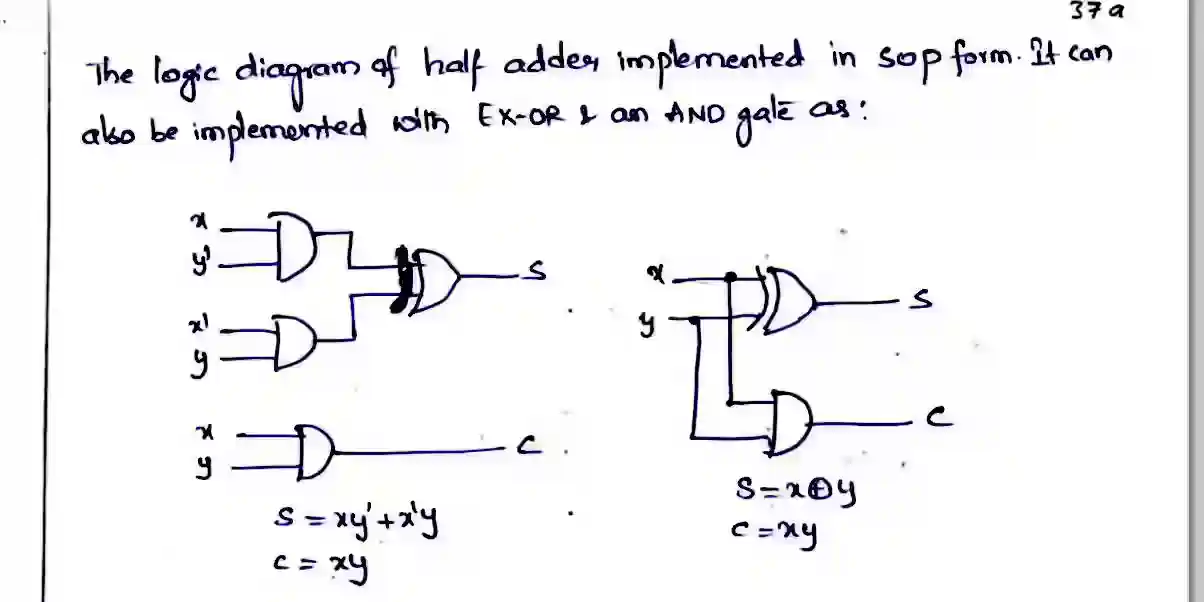 37a
The logic diagram of half adder implemented in sop form. It can
also be implemented with EX-OR & an AND gate as:
x
y'
S
x'
y
x
y
C
S = xy' + x'y
C = xy
x
y
S
C
S = x⊕y
C = xy